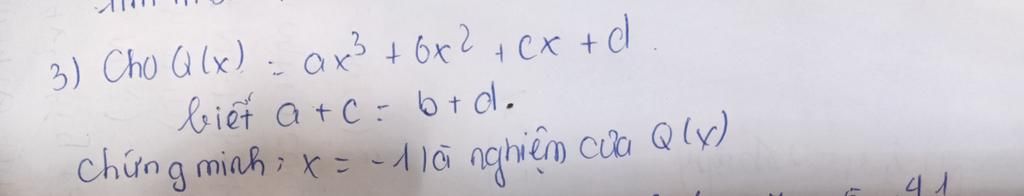 3) Cho Q(x) = ax³ + bx² + cx + d.
biết a + c = b + d.
chứng minh: x = -1 là nghiệm của Q(x)
41